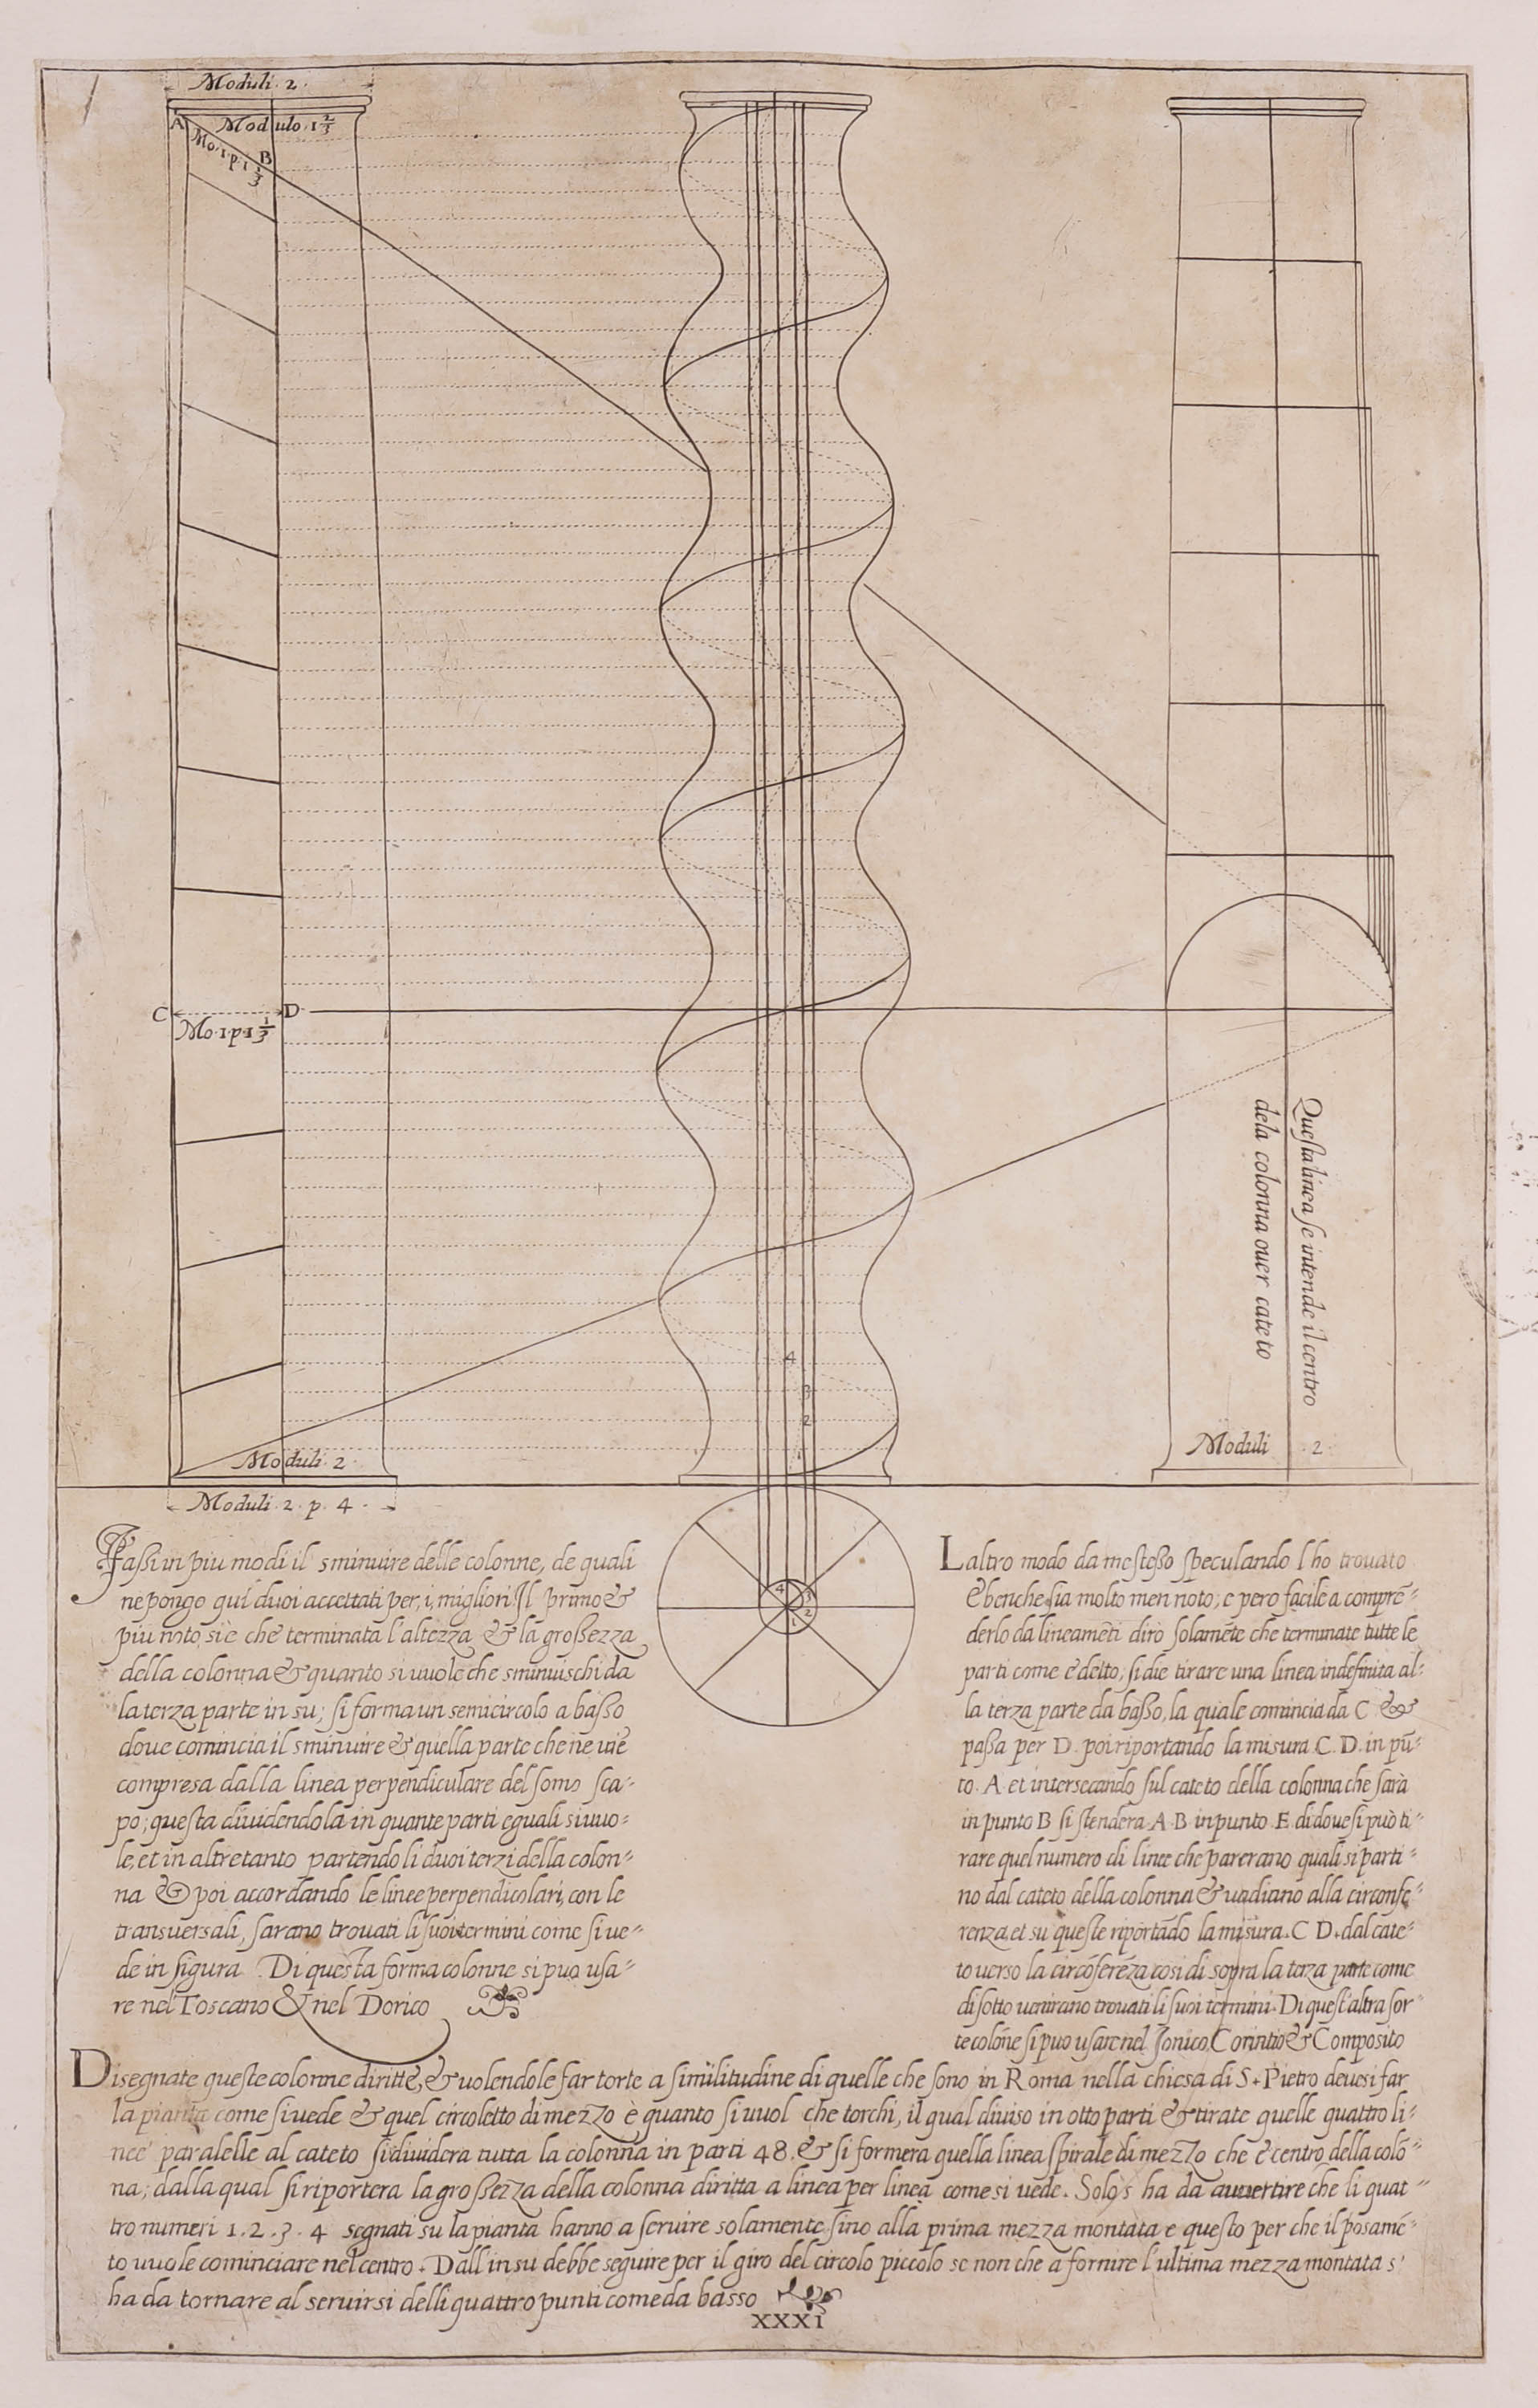 Moduli · 2 ·
A Modulo · 1 2/3
Mo · 1 · p · 1 1/3
B
C D
Mo · 1 · p · 1 1/3
4
3
2
1
Questa linea se intende il centro
dela colonna ouer cateto
Moduli · 2 ·
Moduli · 2 ·
Moduli · 2 · p · 4 ·
4 3
1 2
Fassi in piu modi il sminuire delle colonne, de quali
ne pongo qui duoi accettati per, i, migliori Il primo &
piu noto, si è che terminata l'altezza & la grossezza
della colonna & quanto si uuole che sminuischi da
la terza parte in su; si forma un semicircolo a basso
doue comincia il sminuire & quella parte che ne uiẽ
compresa dalla linea perpendiculare del somo sca-
po; questa diuidendola in quante parti eguali si uuo-
le, et in altretanto partendo li duoi terzi della colon-
na & poi accordando le linee perpendicolari, con le
transuersali, sarano trouati li suoi termini come si ue-
de in figura. Di questa forma colonne si puo usa-
re nel Toscano & nel Dorico
Laltro modo da me stesso speculando l ho trouato
E benche sia molto men noto, e pero facile a comprẽ-
derlo da lineamẽti dirò solamẽte che terminate tutte le
parti come è detto, si die tirare una linea indefinita al-
la terza parte da basso, la quale comincia da C &
passa per D. poi riportando la misura C. D. in pũ-
to. A et intersecando sul cateto della colonna che sarà
in punto B si stendera A·B in punto E di doue si può ti-
rare quel numero di linee che parerano quali si parti-
no dal cateto della colonna & uadiano alla circonfe-
renza, et su queste riportãdo la misura. C D. dal cate-
to uerso la circõferẽza cosi di sopra la terza parte come
di sotto uenirano trouati li suoi termini. Di quest'altra sor-
te colõne si puo usare nel Jonico, Corintio & Composito
Disegnate queste colonne diritte, & uolendole far torte a similitudine di quelle che sono in Roma nella chiesa di S. Pietro deuesi far
la pianta come si uede & quel circoletto di mezzo è quanto si uuol che torchi, il qual diuiso in otto parti & tirate quelle quattro li-
nee paralelle al cateto si diuidera tutta la colonna in parti 48. & si formera quella linea spirale di mezzo che è centro della colõ-
na, dalla qual si riportera la grossezza della colonna diritta a linea per linea come si uede. Solo s ha da auuertire che li quat-
tro numeri 1 · 2 · 3 · 4 segnati su la pianta hanno a seruire solamente sino alla prima mezza montata e questo per che il posamẽ-
to uuole cominciare nel centro. Dall in su debbe seguire per il giro del circolo piccolo se non che a fornire l'ultima mezza montata s'
ha da tornare al seruirsi delli quattro punti come da basso
XXXI